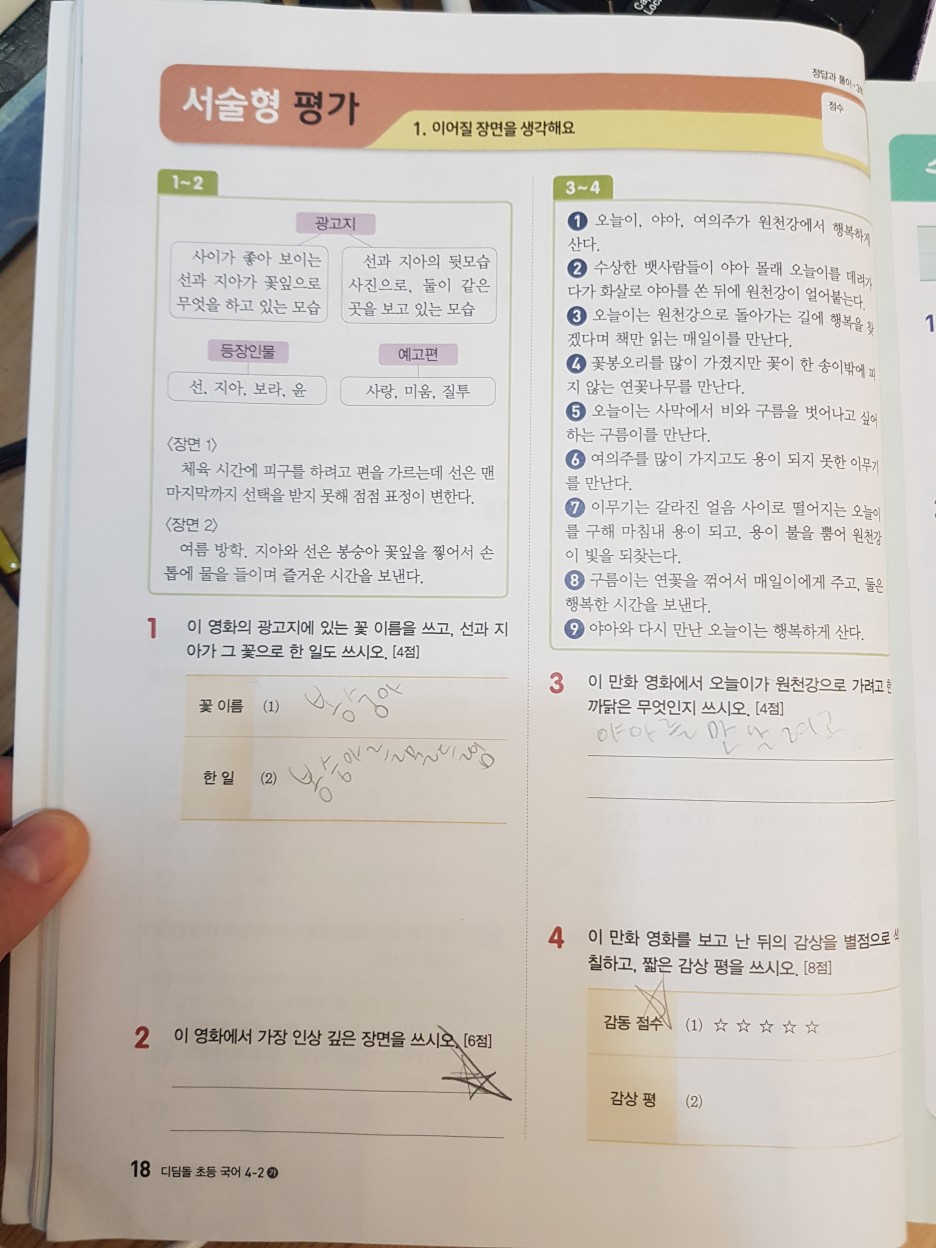 정답과 풀이
서술형 평가
1. 이어질 장면을 생각해요
점수
1~2
광고지
사이가 좋아 보이는
선과 지아가 꽃잎으로
무엇을 하고 있는 모습
선과 지아의 뒷모습
사진으로, 둘이 같은
곳을 보고 있는 모습
등장인물
예고편
선, 지아, 보라, 윤
사랑, 미움, 질투
〈장면 1〉
체육 시간에 피구를 하려고 편을 가르는데 선은 맨
마지막까지 선택을 받지 못해 점점 표정이 변한다.
〈장면 2〉
여름 방학. 지아와 선은 봉숭아 꽃잎을 찧어서 손
톱에 물을 들이며 즐거운 시간을 보낸다.
1 이 영화의 광고지에 있는 꽃 이름을 쓰고, 선과 지
아가 그 꽃으로 한 일도 쓰시오. [4점]
꽃 이름 (1)
한 일 (2)
2 이 영화에서 가장 인상 깊은 장면을 쓰시오. [6점]
18 디딤돌 초등 국어 4-2 가
3~4
1 오늘이, 야아, 여의주가 원천강에서 행복하게
산다.
2 수상한 뱃사람들이 야아 몰래 오늘이를 데려가
다가 화살로 야아를 쏜 뒤에 원천강이 얼어붙는다.
3 오늘이는 원천강으로 돌아가는 길에 행복을 찾
겠다며 책만 읽는 매일이를 만난다.
4 꽃봉오리를 많이 가졌지만 꽃이 한 송이밖에 피
지 않는 연꽃나무를 만난다.
5 오늘이는 사막에서 비와 구름을 벗어나고 싶어
하는 구름이를 만난다.
6 여의주를 많이 가지고도 용이 되지 못한 이무기
를 만난다.
7 이무기는 갈라진 얼음 사이로 떨어지는 오늘이
를 구해 마침내 용이 되고, 용이 불을 뿜어 원천강
이 빛을 되찾는다.
8 구름이는 연꽃을 꺾어서 매일이에게 주고, 둘은
행복한 시간을 보낸다.
9 야아와 다시 만난 오늘이는 행복하게 산다.
3 이 만화 영화에서 오늘이가 원천강으로 가려고 한
까닭은 무엇인지 쓰시오. [4점]
야아를 만날려고
4 이 만화 영화를 보고 난 뒤의 감상을 별점으로 색
칠하고, 짧은 감상 평을 쓰시오. [8점]
감동 점수 (1) ☆ ☆ ☆ ☆ ☆
감상 평 (2)